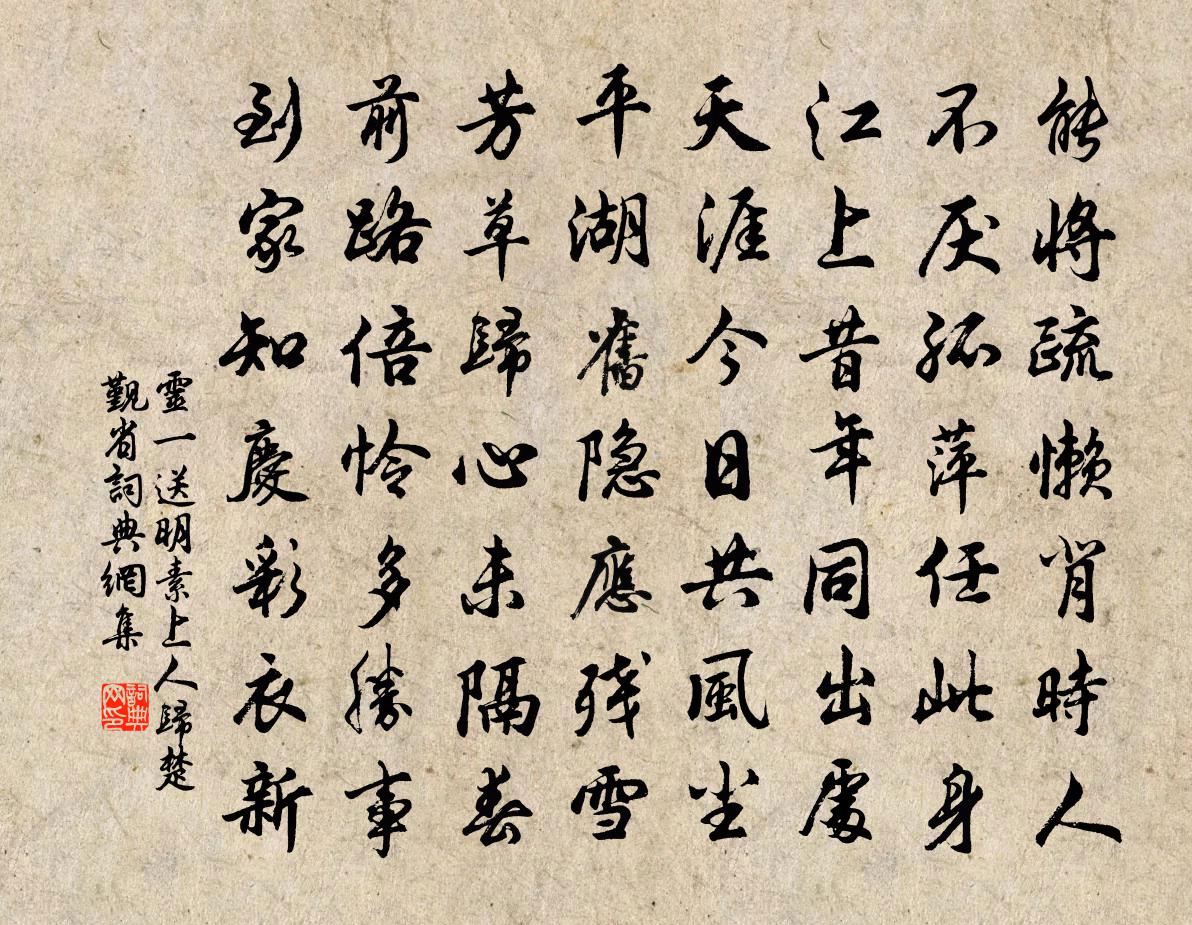 能將疏懶背時人
不厌孤萍任此身
江上昔年同出處
天涯今日共風尘
平湖舊隐應殘雪
芳草歸心未隔春
前路倍怜多勝事
到家知慶彩衣新
靈一送明素上人歸楚
觐省詞典網集
詞典网印